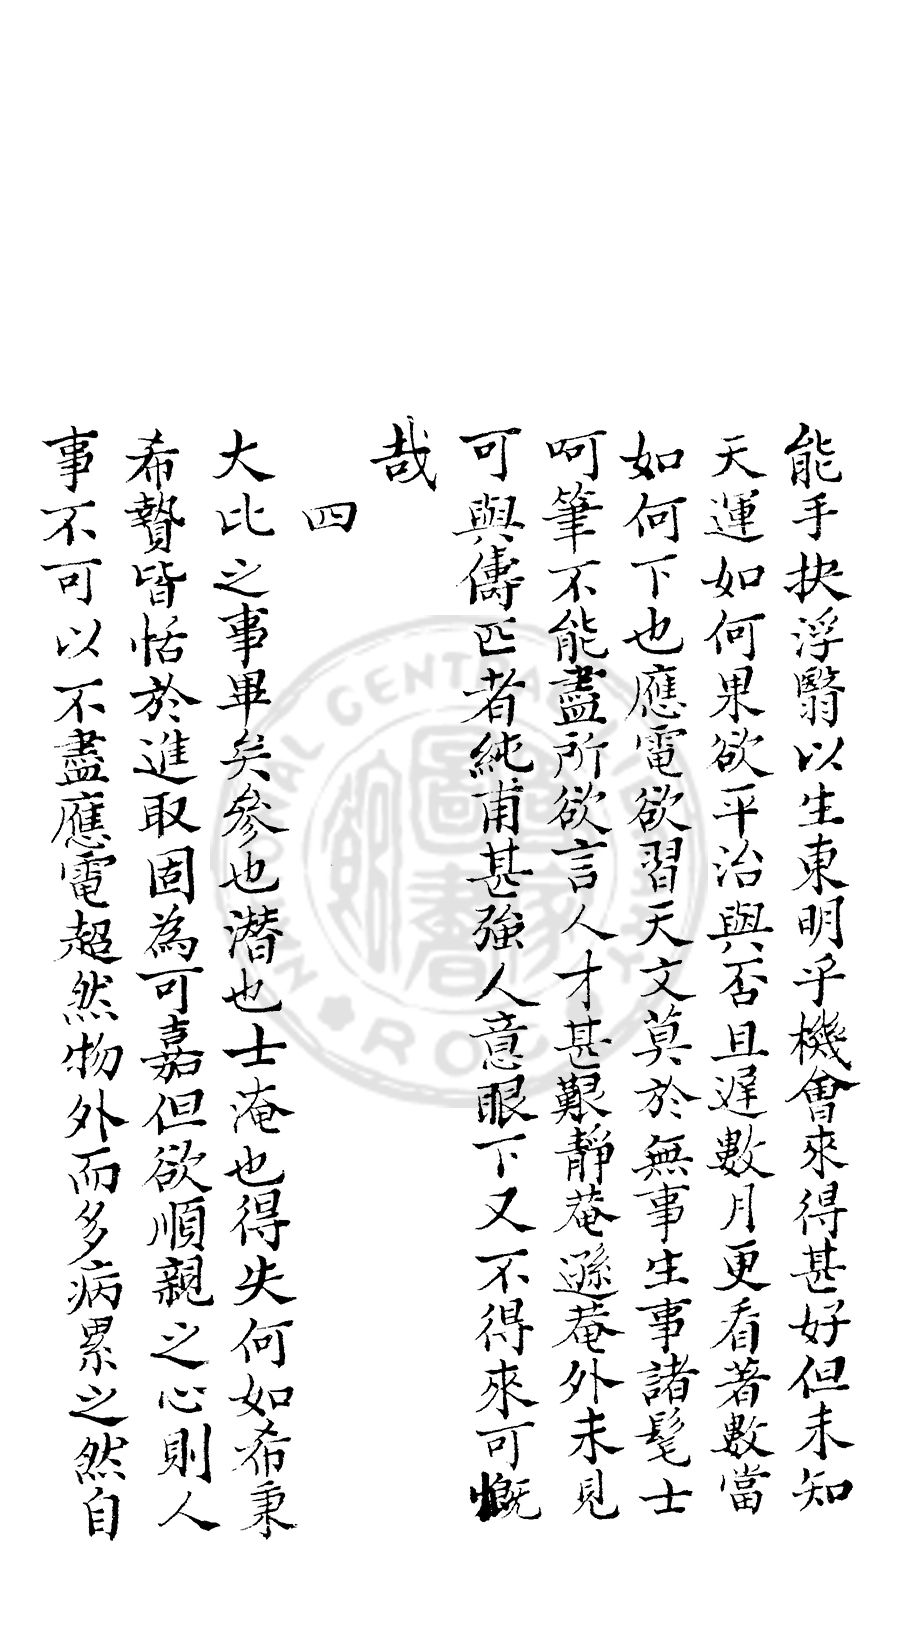 能手抉浮翳以生東明乎機會來得甚好但未知
天運如何果欲平治與否且遲數月更看著數當
如何下也應電欲習天文莫於無事生事諸髦士
呵筆不能盡所欲言人才甚艱靜菴遜菴外未見
可與儔匹者純甫甚強人意眼下又不得來可慨
哉
四
大比之事畢矣參也潛也士淹也得失何如希秉
希贄皆恬於進取固為可嘉但欲順親之心則人
事不可以不盡應電超然物外而多病累之然自
NATIONAL CENTRAL LIBRARY
R.O.C.
國家圖書館